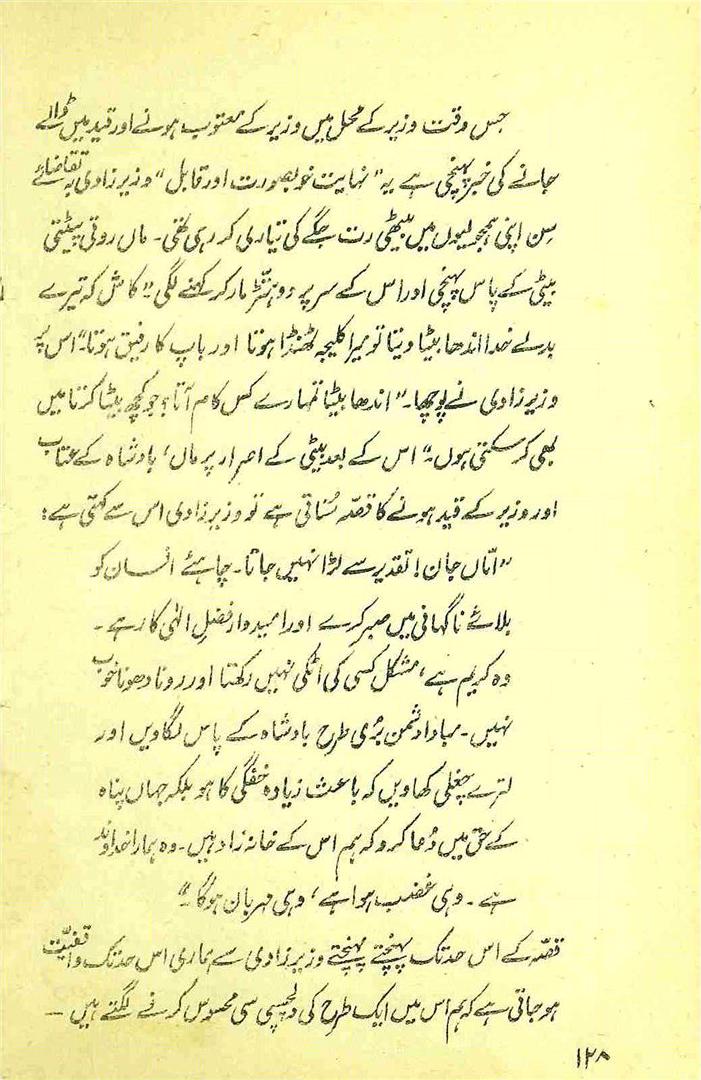 جس وقت وزیر کے محل میں وزیر کے معتوب ہونے اور قید میں ڈالے
جانے کی خبر پہنچی ہے یہ "نہایت خوبصورت اور قابل" وزیر زادی بہ تقاضائے
سِن اپنی ہمجولیوں میں بیٹھی رت جگے کی تیاری کر رہی تھی۔ ماں روتی پیٹتی
بیٹی کے پاس پہنچی اور اس کے سر پر دوہتّڑ مار کر کہنے لگی "کاش کہ تیرے
بدلے خدا اندھا بیٹا دیتا تو میرا کلیجہ ٹھنڈا ہوتا اور باپ کا رفیق ہوتا۔" اس پر
وزیر زادی نے پوچھا۔ "اندھا بیٹا تمہارے کس کام آتا؟ جو کچھ بیٹا کرتا میں
بھی کر سکتی ہوں۔" اس کے بعد بیٹی کے اصرار پر ماں، بادشاہ کے عتاب
اور وزیر کے قید ہونے کا قصّہ سُناتی ہے تو وزیر زادی اس سے کہتی ہے:
"امّاں جان! تقدیر سے لڑا نہیں جاتا۔ چاہئے انسان کو
بلائے ناگہانی میں صبر کرے اور امیدوار فضلِ الٰہی کا رہے۔
وہ کریم ہے، مشکل کسی کی اٹکی نہیں رکھتا اور رونا دھونا خوب
نہیں۔ مبادا دشمن بُری طرح بادشاہ کے پاس لگاویں اور
لترے چغلی کھاویں کہ باعث زیادہ خفگی کا ہو بلکہ جہاں پناہ
کے حق میں دُعا کرو کہ ہم اس کے خانہ زاد ہیں۔ وہ ہمارا خداوند
ہے۔ وہی غضب ہوا ہے، وہی مہربان ہوگا۔"
قصّہ کے اس حد تک پہنچتے پہنچتے وزیر زادی سے ہماری اس حد تک واقفیّت
ہو جاتی ہے کہ ہم اس میں ایک طرح کی دلچسپی سی محسوس کرنے لگتے ہیں —
۱۲۸